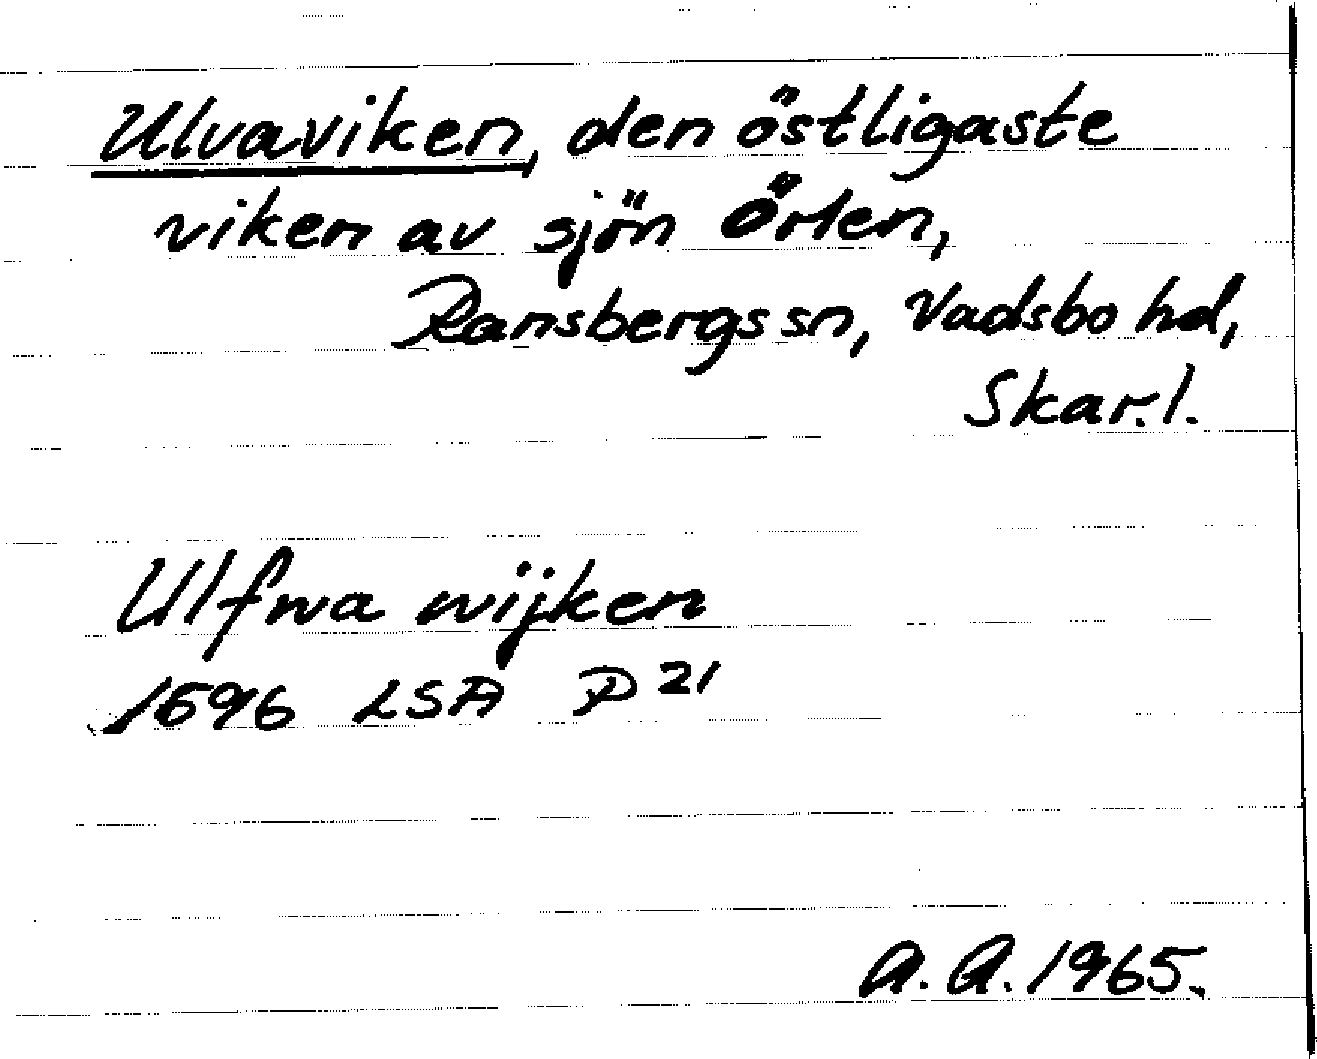 Ulvaviken, den östligaste
viken av sjön Örlen,
Ransbergs sn, Vadsbo hd,
Skar. l.
Ulfwa wijken
1696 LSA P 21
A. A. 1965.